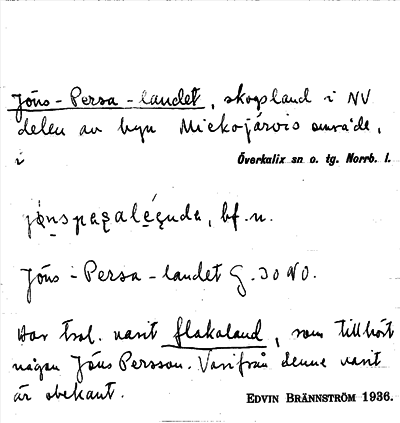 Jöns-Persa-landet, skogsland i NV
delen av byn Miekojärvis område,
i Överkalix sn o. tg. Norrb. l.
bf. n.
Jöns-Persa-landet G. 30 NO.
Har trol. varit flakaland, som tillhört
någon Jöns Persson. Varifrån denne varit
är obekant.
EDVIN BRÄNNSTRÖM 1936.